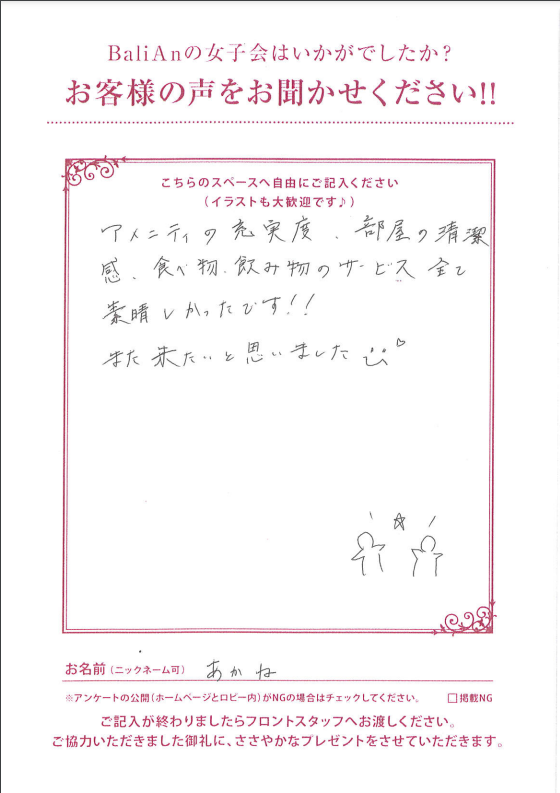 BaliAnの女子会はいかがでしたか？
お客様の声をお聞かせください!!
こちらのスペースへ自由にご記入ください
（イラストも大歓迎です♪）
アメニティの充実度、部屋の清潔
感、食べ物、飲み物のサービス全て
素晴しかったです！！
また来たいと思いました
お名前（ニックネーム可） あかね
※アンケートの公開（ホームページとロビー内）がNGの場合はチェックしてください。 □掲載NG
ご記入が終わりましたらフロントスタッフへお渡しください。
ご協力いただきました御礼に、ささやかなプレゼントをさせていただきます。